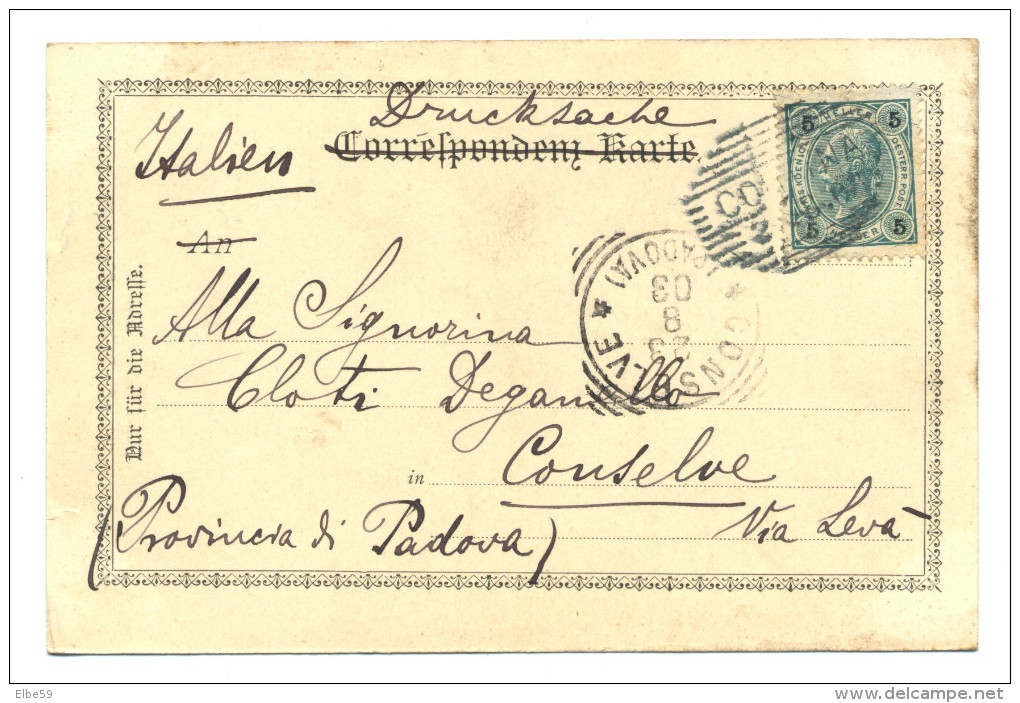 Drucksache
Correspondenz-Karte.
Italien
An
Alla Signorina
Cloti Deganello
in Conselve
Via Levà
(Provincia di Padova)
Nur für die Adresse.
5 HELLER 5
5 HELLER 5
OESTERR. POST
CONSELVE
(PADOVA)
8
03
Elbe59
www.delcampe.net